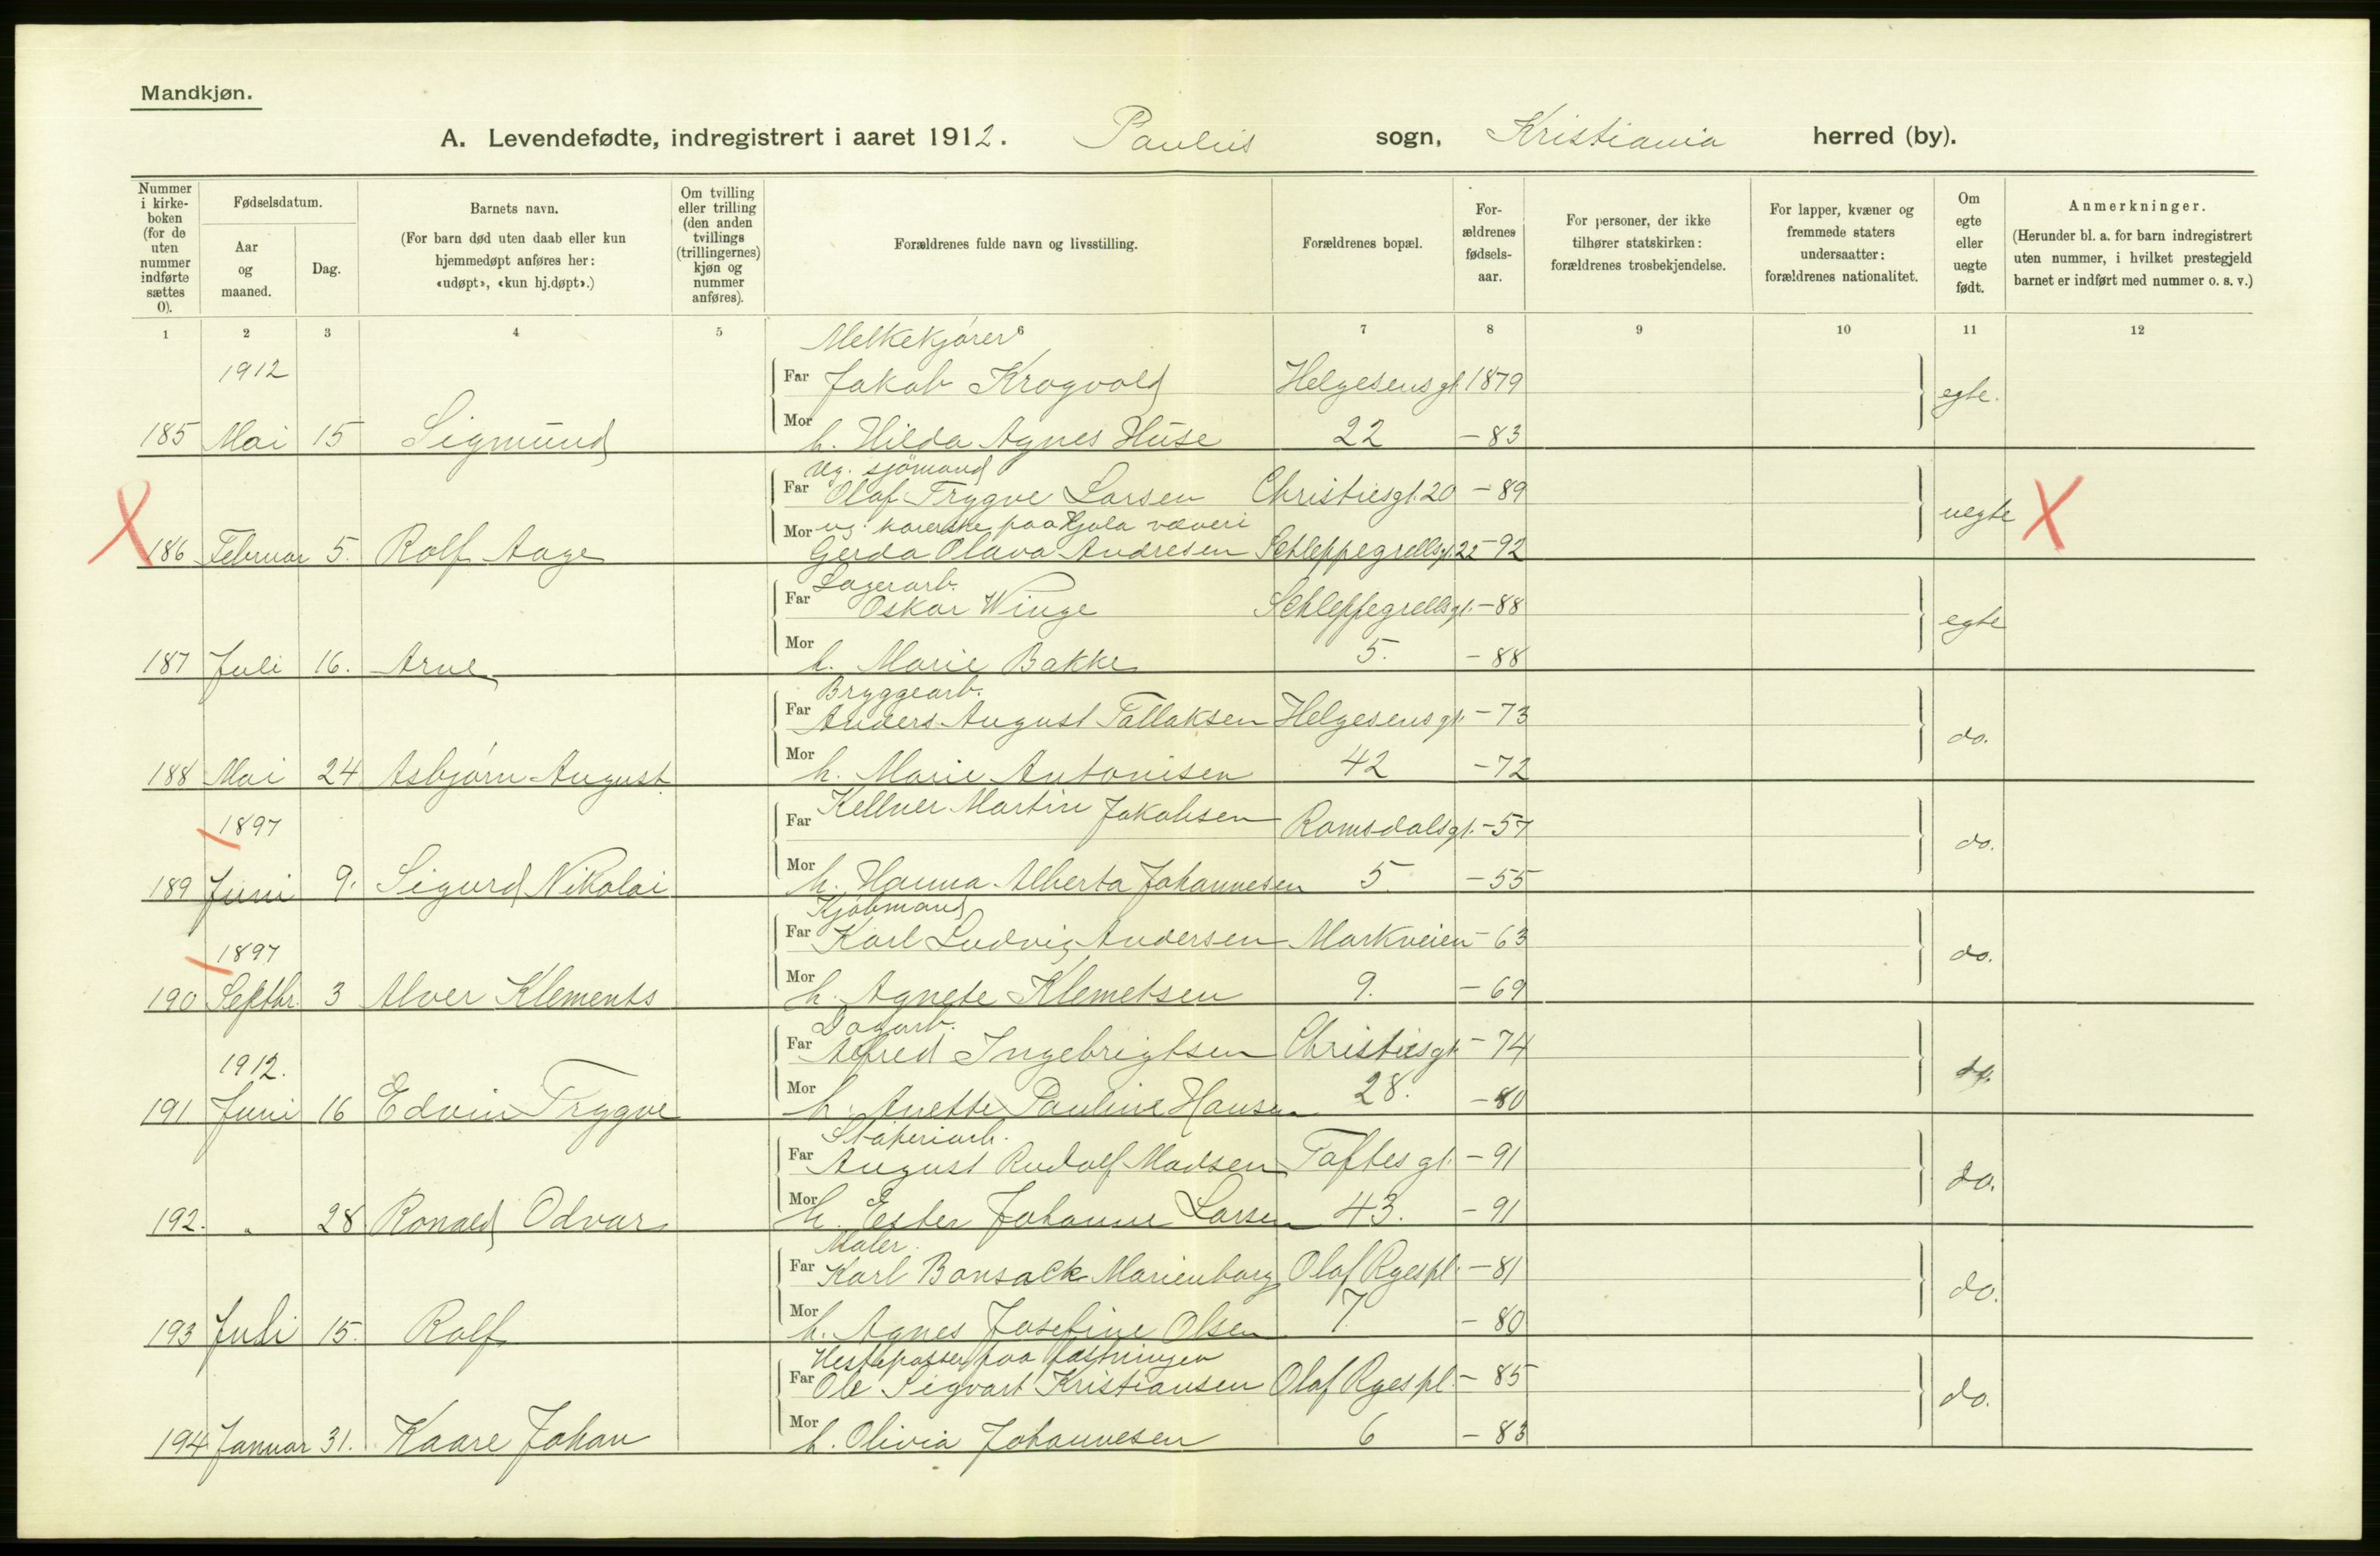 Mandkjøn.
A. Levendefødte, indregistrert i aaret 1912. Paulus sogn, Kristiania herred (by).
Nummer i kirke-boken (for de uten nummer indførte sættes 0).
Fødselsdatum.
Aar og maaned.
Dag.
Barnets navn.
(For barn død uten daab eller kun hjemmedøpt anføres her: «udøpt», «kun hj.døpt».)
Om tvilling eller trilling (den anden tvillings (trillingernes) kjøn og nummer anføres).
Forældrenes fulde navn og livsstilling.
Forældrenes bopæl.
For-ældrenes fødsels-aar.
For personer, der ikke tilhører statskirken: forældrenes trosbekjendelse.
For lapper, kvæner og fremmede staters undersaatter: forældrenes nationalitet.
Om egte eller uegte født.
Anmerkninger.
(Herunder bl. a. for barn indregistrert uten nummer, i hvilket prestegjeld barnet er indført med nummer o. s. v.)
1 2 3 4 5 6 7 8 9 10 11 12
Melkekjører
1912 Far Jakob Krogvold Helgesens gt. 1879 egte.
185 Mai 15 Sigmund Mor h. Hilda Agnes Huse 22 -83
Ug. sjömand
Far Olaf Trygve Larsen Christiesgt. 20 -89 uegte X
Mor ug. paa Hjula væveri
X 186 Februar 5. Rolf Aage Gerda Olava Andresen Schleppegrellsgt. 22 -92
Lagerarb.
Far Oskar Winge Schleppegrellsgt. -88 egte
187 Juli 16. Arne Mor h. Marie Bakke 5. -88
Bryggearb.
Far Anders August Tallaksen Helgesens gt. -73 do.
188 Mai 24 Asbjørn August Mor h. Marie Antonisen 42 -72
1897 Far Kellner Martin Jakobsen Romsdalsgt. -57 do.
189 Juni 9. Sigurd Nikolai Mor h. Hanna Alberta Johannesen 5. -55
Kjöbmand
1897 Far Karl Ludvig Andersen Markveien -63 do.
190 Septbr. 3 Alver Klements Mor h. Agnete Klemetsen 9. -69
Dagarb.
1912. Far Alfred Ingebrigtsen Christiesgt. -74 do.
191 Juni 16 Edvin Trygve Mor h. Anette Pauline Hansen 28. -80
Støperiarb.
Far August Rudolf Madsen Toftes gt. -91 do.
192. " 28 Ronald Odvar Mor h. Ester Johanne Larsen 43. -91
Maler.
Far Karl Bonsack Marienborg Olaf Ryes pl. -81 do.
193 Juli 15. Rolf Mor h. Agnes Josefine Olsen 7. -80
Hestepasser paa fæstningen
Far Ole Sigvart Kristiansen Olaf Ryes pl. -85 do.
194 Januar 31. Kaare Johan Mor h. Olivia Johannesen 6 -83